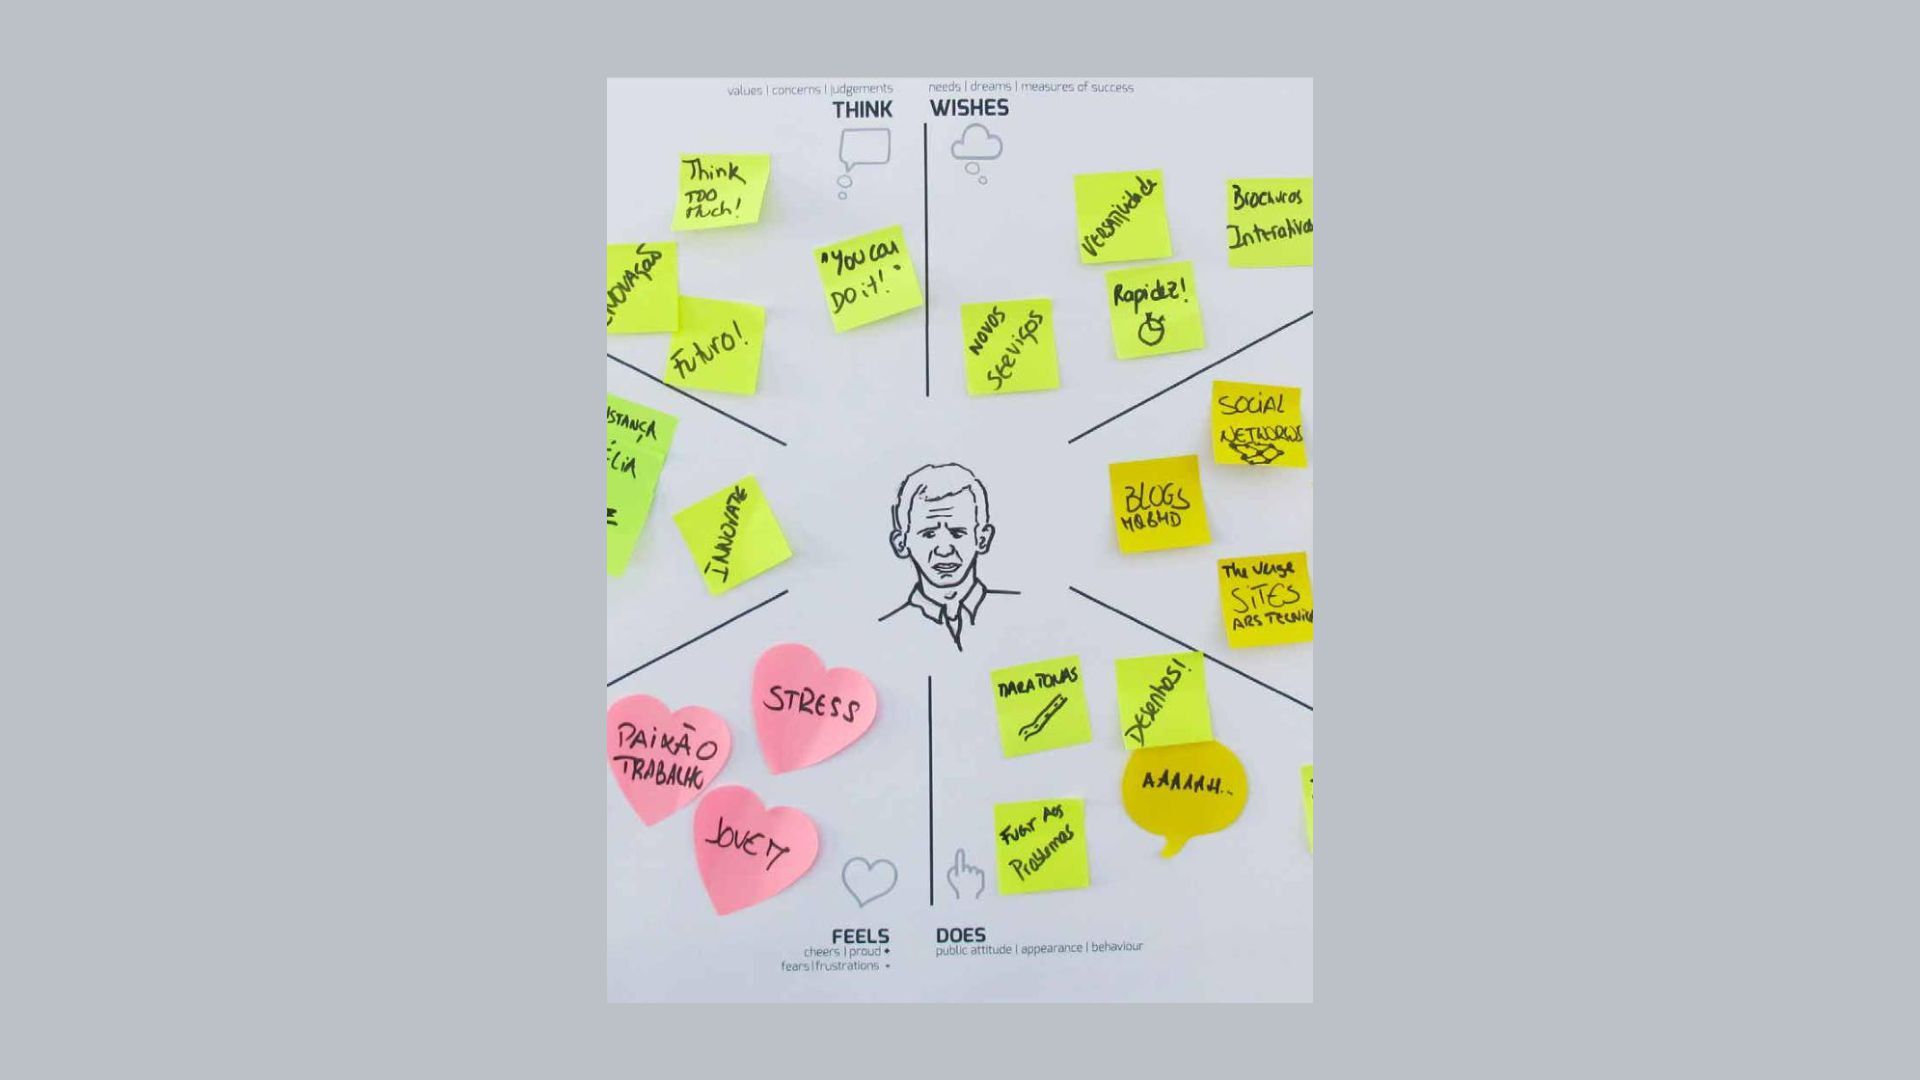 values | concerns | judgements
THINK
needs | dreams | measures of success
WISHES
Think
TOO
Much!
"You can
DO it!"
Futuro!
VERSATILIDADE
Brochuras
Rapidez!
NOVOS
SERVIÇOS
INNOVATE
SOCIAL
NETWORKS
BLOGS
The Verge
SITES
STRESS
PAIXÃO
TRABALHO
JOVEM
MARATONAS
Desenhos!
AAAAAH..
FUGIR AOS
Problemas
FEELS
cheers | proud +
fears | frustrations -
DOES
public attitude | appearance | behaviour